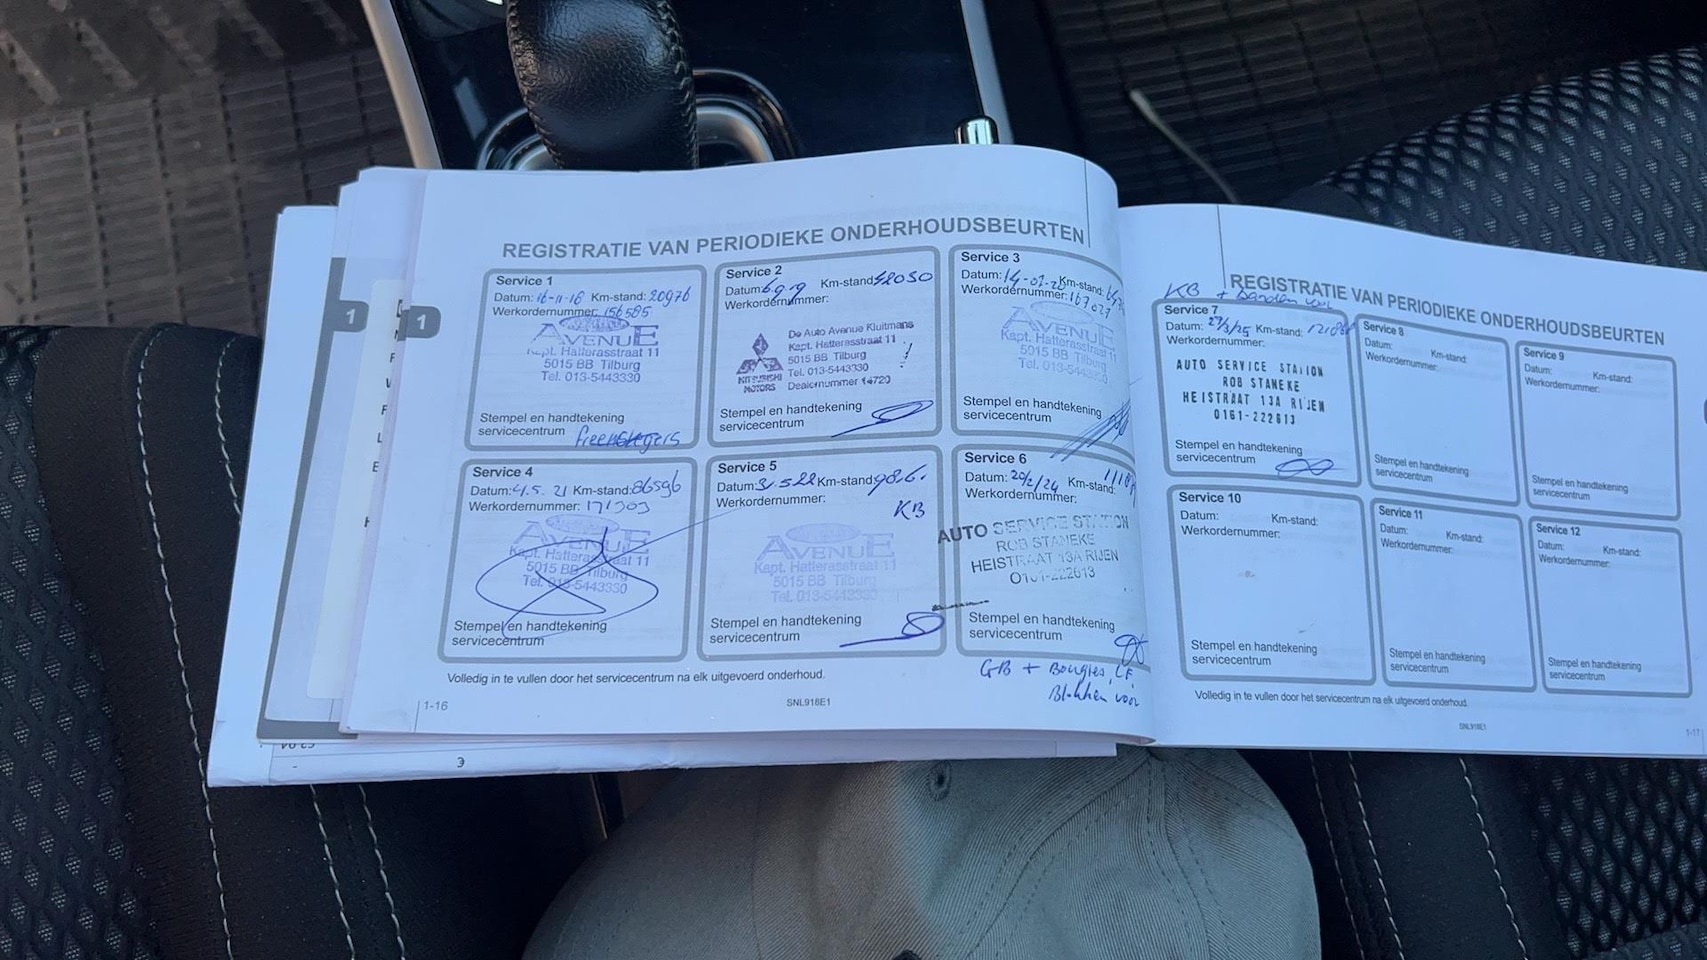 REGISTRATIE VAN PERIODIEKE ONDERHOUDSBEURTEN
Service 1
Datum: 16-11-18 Km-stand: 20976
Werkordernummer: 156585
AVENUE
Kapt. Hatterasstraat 11
5015 BB Tilburg
Tel. 013-5443330
Stempel en handtekening
servicecentrum
Service 2
Datum: 6.9.19 Km-stand: 42050
Werkordernummer:
De Auto Avenue Kluitmans
Kapt. Hatterasstraat 11
5015 BB Tilburg
Tel. 013-5443330
Dealernummer 14720
MITSUBISHI
MOTORS
Stempel en handtekening
servicecentrum
Service 3
Datum: 14-02- Km-stand:
Werkordernummer: 167027
AVENUE
Kapt. Hatterasstraat 11
5015 BB Tilburg
Tel. 013-5443330
Stempel en handtekening
servicecentrum
Service 4
Datum: 4.5.21 Km-stand: 86596
Werkordernummer: 171303
AVENUE
Kapt. Hatterasstraat 11
5015 BB Tilburg
Tel. 013-5443330
Stempel en handtekening
servicecentrum
Service 5
Datum: 3.5.22 Km-stand:
Werkordernummer:
KB
AVENUE
Kapt. Hatterasstraat 11
5015 BB Tilburg
Tel. 013-5443330
Stempel en handtekening
servicecentrum
Service 6
Datum: 20/2/24 Km-stand:
Werkordernummer:
AUTO SERVICE STATION
ROB STANEKE
HEISTRAAT 13A RIJEN
0161-222613
Stempel en handtekening
servicecentrum
GB + Bougies, LF,
Blokken voor
Volledig in te vullen door het servicecentrum na elk uitgevoerd onderhoud.
1-16
SNL918E1
1
1
REGISTRATIE VAN PERIODIEKE ONDERHOUDSBEURTEN
KB + Banden voor
Service 7
Datum: 27/3/25 Km-stand:
Werkordernummer:
AUTO SERVICE STATION
ROB STANEKE
HEISTRAAT 13A RIJEN
0161-222613
Stempel en handtekening
servicecentrum
Service 8
Datum: Km-stand:
Werkordernummer:
Stempel en handtekening
servicecentrum
Service 9
Datum: Km-stand:
Werkordernummer:
Stempel en handtekening
servicecentrum
Service 10
Datum: Km-stand:
Werkordernummer:
Stempel en handtekening
servicecentrum
Service 11
Datum: Km-stand:
Werkordernummer:
Stempel en handtekening
servicecentrum
Service 12
Datum: Km-stand:
Werkordernummer:
Stempel en handtekening
servicecentrum
Volledig in te vullen door het servicecentrum na elk uitgevoerd onderhoud.
SNL918E1
1-17